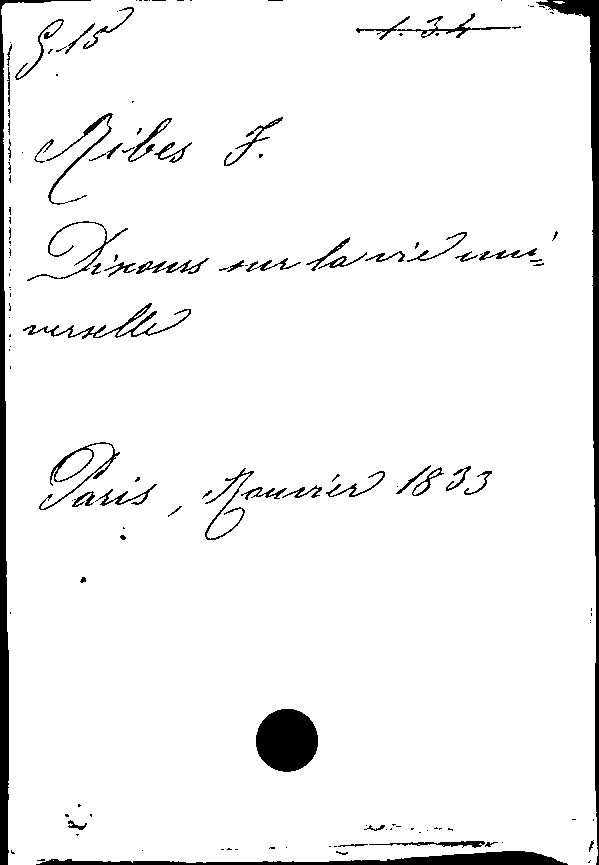 G.15 1.3.4
Ribes F.
Discours sur la vie uni=
verselle
Paris, Rouvier 1833